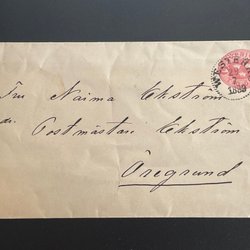 Fru Naima Ekström
adr. Postmästare Ekström
Öregrund